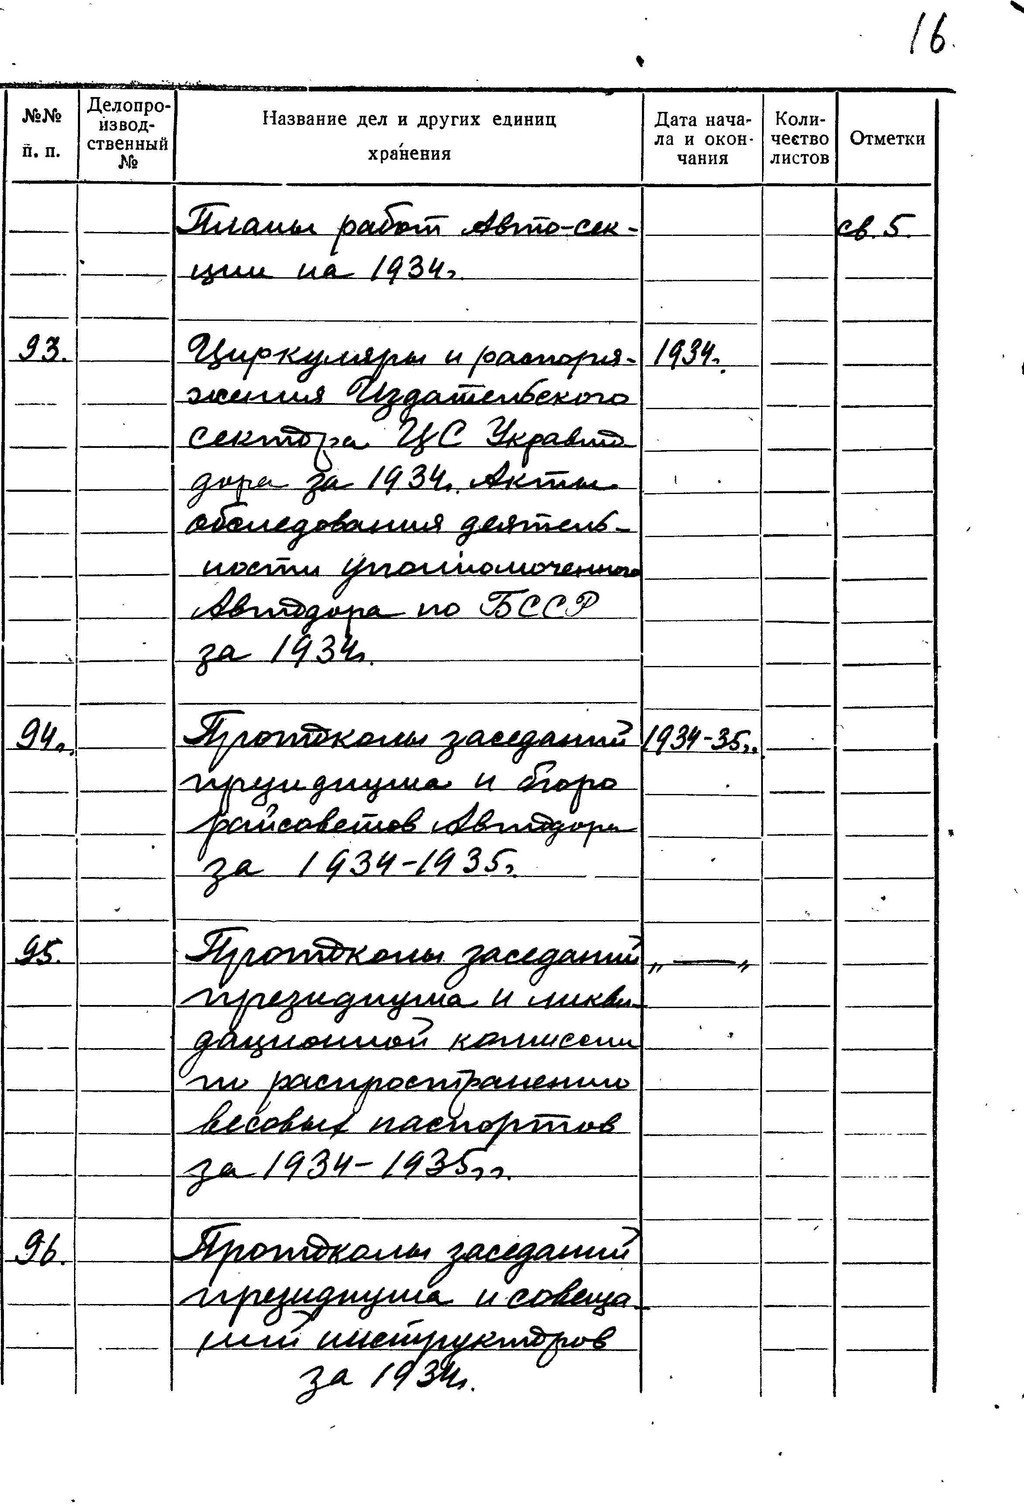 16.
№№ п. п. Делопро-извод-ственный № Название дел и других единиц хранения Дата нача-ла и окон-чания Коли-чество листов Отметки
Планы работ Авто-сек- св. 5.
ции на 1934г.
93. Циркуляры и распоря- 1934г.
жения Издательского
сектора ЦС Укравто
дора за 1934г. Акты
обследования деятель-
ности уполномоченного
Автодора по БССР
за 1934г.
94. Протоколы заседаний 1934-35гг.
президиума и бюро
райсоветов Автодора
за 1934-1935г.
95. Протоколы заседаний „ — „
президиума и ликви-
дационной комиссии
по распространению
весовых паспортов
за 1934-1935гг.
96. Протоколы заседаний
президиума и совеща-
ний инструкторов
за 1934г.